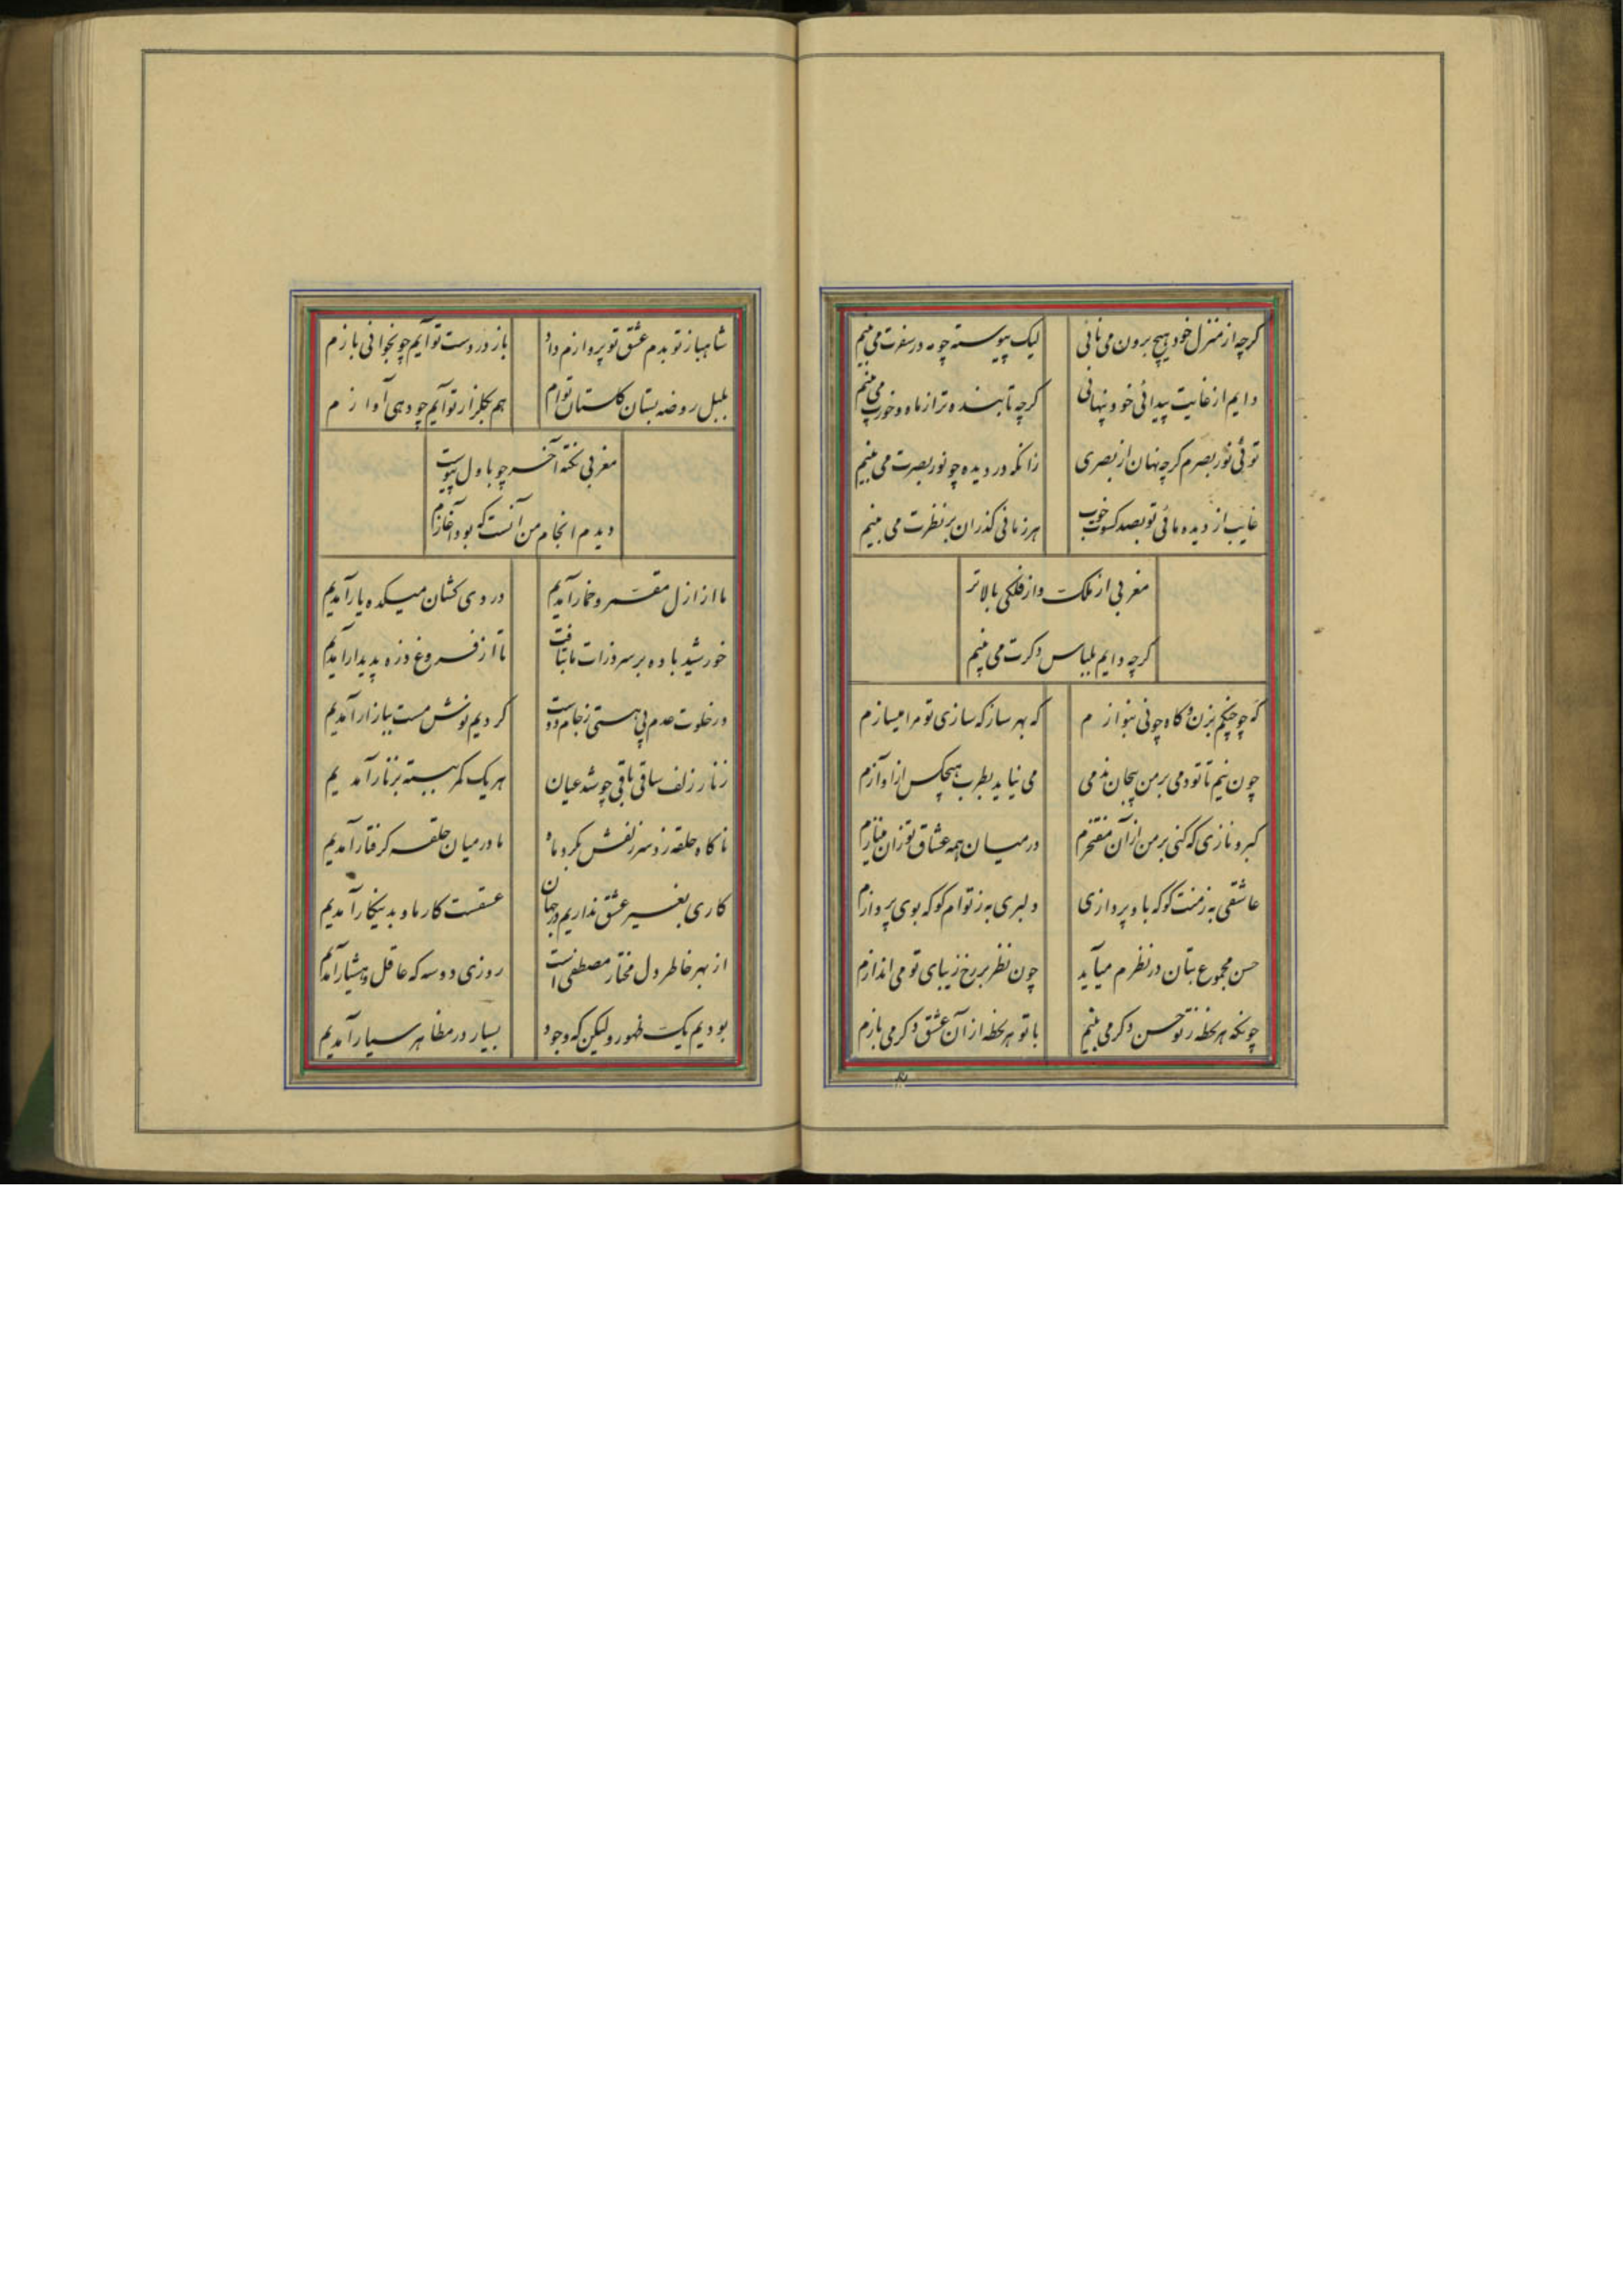 کرچه از منزل خود هیچ برون می نائی
لیک پیوسته چو مه در سفرت می بینم
دایم از غایت پیدائی خود پنهانی
کرچه تابنده تر از ماه و خورت می بینم
توئی نور بصرم کرچه نهان از بصری
زانکه در دیده چو نور بصرت می بینم
غایب از دیده مائی تو بصد کسوت خوب
هر زمانی کذران بر نظرت می بینم
مغربی از ملک و از فلکی بالاتر
کرچه دایم بلباس دکرت می بینم
که چو چنکم بزن و کاه چو نی بنوازم
که بهر ساز که سازی تو مرا میسازم
چون نیم تا تو دمی بر من بیجان ندمی
می نیاید بطرب هیچکس از اوازم
کبر و نازی که کنی بر من از آن مفتخرم
در میان همه عشاق تو زان مینازم
عاشقی به ز منت کو که باو پردازی
دلبری به ز توام کو که بوی پردازم
حسن مجموع بتان در نظرم میآید
چون نظر بر رخ زیبای تو می اندازم
چونکه هر لحظه ز تو حسن دکر می بینم
با تو هر لحظه از آن عشق دکر می بازم
شاهباز تو بدم عشق تو پروازم داد
باز در دست تو آیم چو بخوانی بازم
بلبل روضه بستان کلستان توام
هم بکلزار تو آیم چو دهی آوازم
مغربی نکته آخر چو باول پیوست
دیدم انجام من آنست که بود آغازم
ما از ازل مقمر و خمار آمدیم
دردی کشان میکده یار آمدیم
خورشید باده بر سر ذرات ما بتافت
تا از فروغ ذره پدیدار آمدیم
در خلوت عدم پی هستی ز جام دوست
کردیم نوش مست ببازار آمدیم
زنار زلف ساقی باقی چو شد عیان
هر یک کمر ببسته بزنار آمدیم
ناکاه حلقه زد سر زلفش بکرد ماه
ما در میان حلقه کرفتار آمدیم
کاری بغیر عشق نداریم در جهان
عشقست کار ما و بدینکار آمدیم
از بهر خاطر دل مختار مصطفی است
روزی دو سه که عاقل و هشیار آمدیم
بودیم یک ظهور ولیکن که وجود
بسیار در مظاهر سیار آمدیم